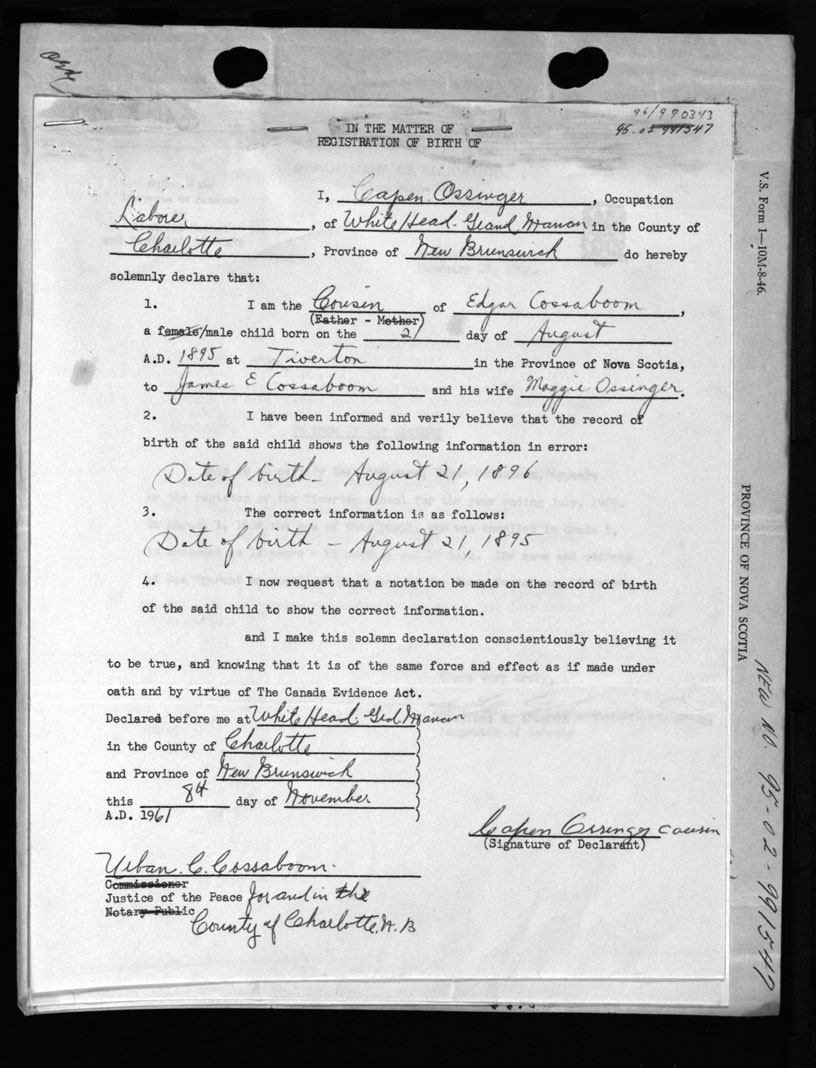 96/990343
95-02-991547
IN THE MATTER OF
REGISTRATION OF BIRTH OF
I, Capen Ossinger, Occupation
Laborer, of White Head. Grand Manan in the County of
Charlotte, Province of New Brunswick do hereby
solemnly declare that:
1. I am the Cousin of Edgar Cossaboom,
(Father - Mother)
a female/male child born on the 21 day of August
A.D. 1895 at Tiverton in the Province of Nova Scotia,
to James E Cossaboom and his wife Maggie Ossinger.
2. I have been informed and verily believe that the record of
birth of the said child shows the following information in error:
Date of birth - August 21, 1896
3. The correct information is as follows:
Date of birth - August 21, 1895
4. I now request that a notation be made on the record of birth
of the said child to show the correct information.
and I make this solemn declaration conscientiously believing it
to be true, and knowing that it is of the same force and effect as if made under
oath and by virtue of The Canada Evidence Act.
Declared before me at White Head. Grd. Manan
in the County of Charlotte
and Province of New Brunswick
this 8th day of November
A.D. 1961
Capen Ossinger cousin
(Signature of Declarant)
Urban. C. Cossaboom.
Commissioner
Justice of the Peace for and in the
Notary Public
County of Charlotte, N.B
V.S. Form 1—10M-8-46.
PROVINCE OF NOVA SCOTIA
NEW NO. 95-02-991547